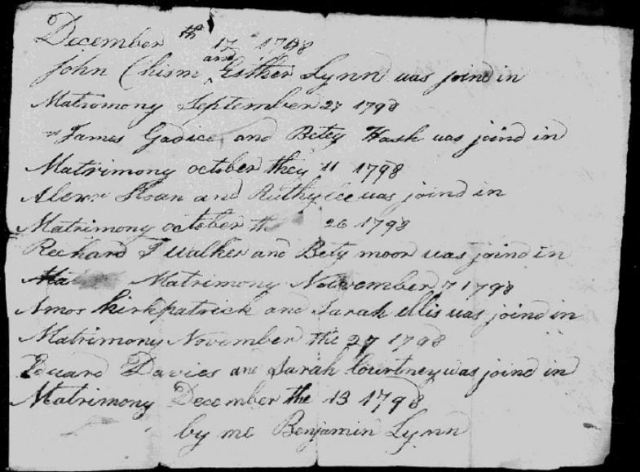 December th 17 1798
John Chism and Esther Lynn was joind in
Matromony September 27 1798
James and Betey Hash was joind in
Matrimony october they 11 1798
Alexr Sloan and was joind in
Matrimony october th 26 1798
Rechard T walker and Bety moor was joind in
Matrimony Novvember 7 1798
Amos Kirkpatrick and Sarah ellis was joind in
Matrimony November the 27 1798
Edward Davies and Sarah Courtney was joind in
Matrimony December the 13 1798
by me Benjamin Lynn